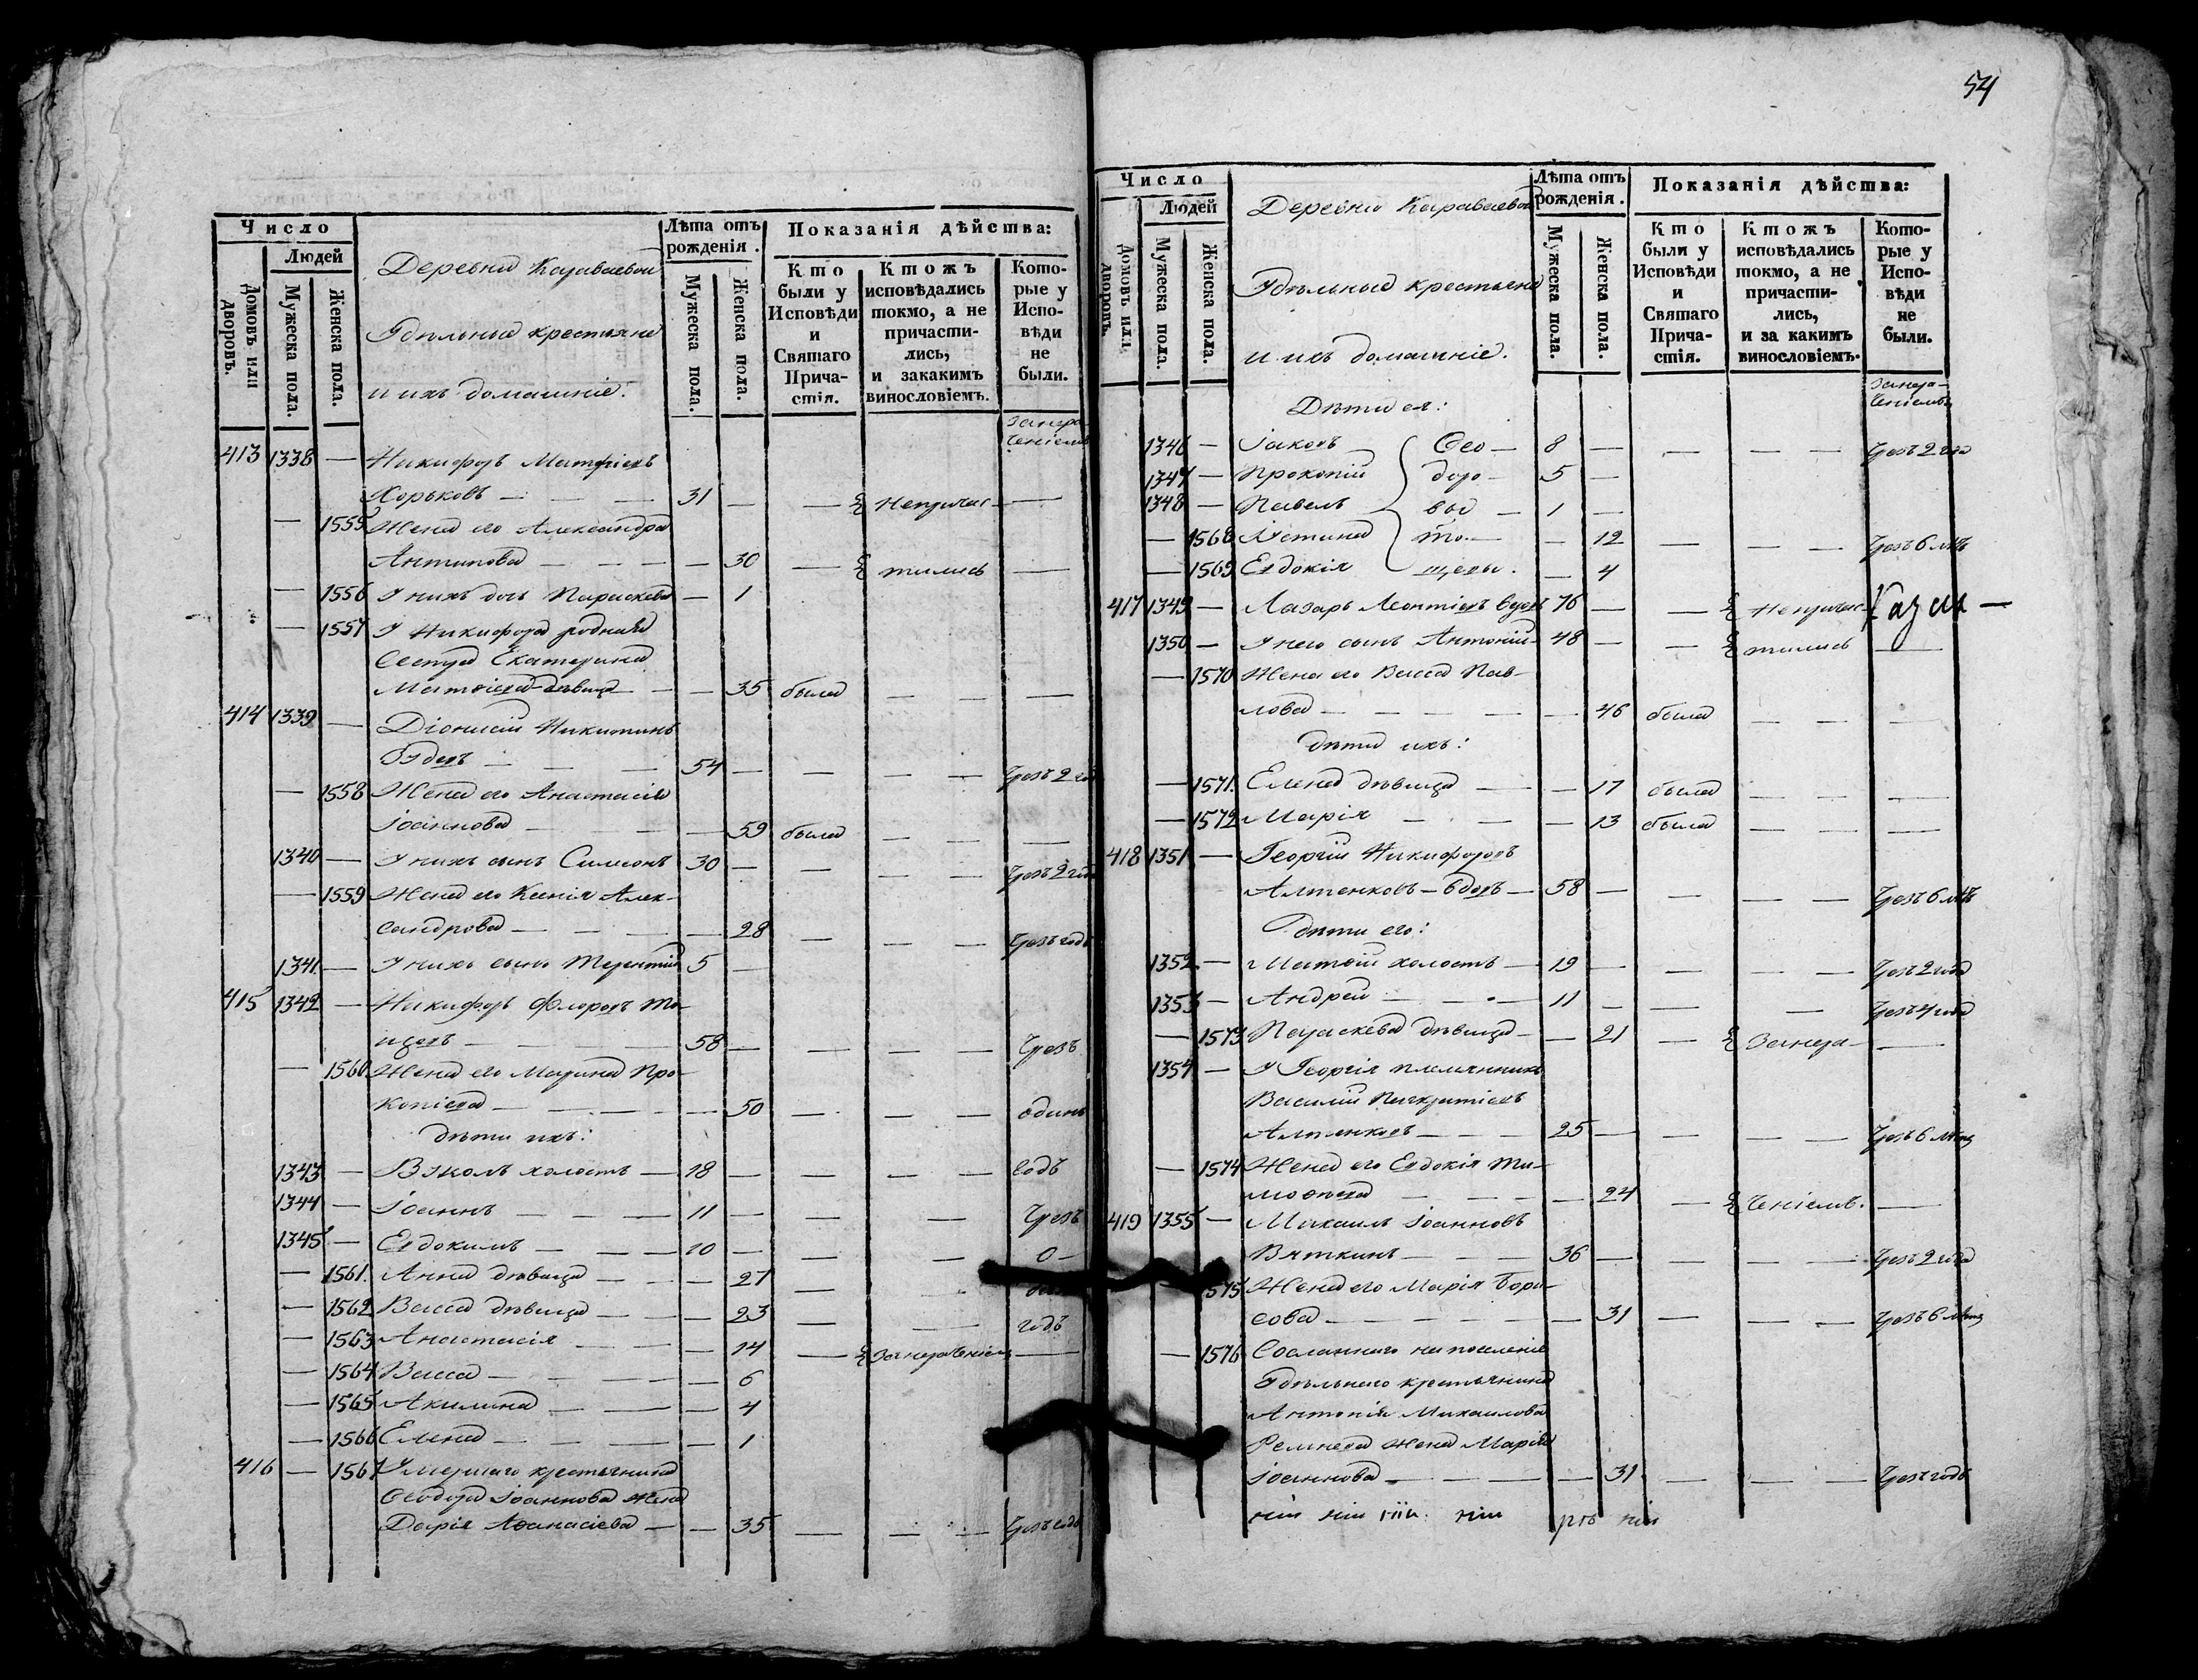 Число
Людей
Домовъ или дворовъ.
Мужеска пола.
Женска пола.
Деревни Караваевой
Удѣльные крестьяне
и ихъ домашніе.
Лѣта отъ рожденія.
Мужеска пола.
Женска пола.
Показанія дѣйства:
Кто были у Исповѣди и Святаго Прича-стія.
Ктожъ исповѣдались токмо, а не причасти-лись, и закакимъ винословіемъ.
Кото-рые у Испо-вѣди не были.
413 1338 — Никифоръ Матфіевъ
Хорьковъ — 31 —
— 1555 Жена его Александра
Антипова — — 30 — тились —
— 1556 У нихъ дочь Параскева — 1
— 1557 У Никифора родная
Сестра Екатерина
Матвіева девица — — 35 была — — —
414 1339 — Діонисій Никитинъ
Вдовъ — 54 — — — — Чрезъ 2 года
— 1558 Жена его Анастасія
Іоаннова — — 59 была — —
1340 — У нихъ сынъ Симеонъ 30 — — — — Чрезъ 2 года
— 1559 Жена его Ксенія Алек-
сандрова — — 28 — — — Чрезъ годъ
1341 — У нихъ сынъ Терентій 5 —
415 1342 — Никифоръ Флоровъ
58 — — — — Чрезъ
— 1560 Жена его Марина Про-
копіева — — 50 — — — одинъ
дѣти ихъ:
1343 — Вуколъ холостъ — 18 — — — — годъ
1344 — Іоаннъ — 11 — — — Чрезъ
1345 — Евдокимъ — 10 — — — о-
— 1561. Анна дѣвица — — 27 — —
— 1562 Васса дѣвица — — 23 — — годъ
— 1563 Анастасія — — 14 — Занераченіемъ —
— 1564 Васса — — 6
— 1565 Акилина — — 4
— 1566 Елена — — 1
416 — 1567 Умершаго крестьянина
Ѳеодора Іоаннова жена
Дарія Аѳанасіева — — 35 — — — Чрезъ годъ
54
Число
Людей
Домовъ или дворовъ.
Мужеска пола.
Женска пола.
Деревни Караваевой
Удѣльные крестьяне
и ихъ домашніе.
Лѣта отъ рожденія.
Мужеска пола.
Женска пола.
Показанія дѣйства:
Кто были у Исповѣди и Святаго Прича-стія.
Ктожъ исповѣдались токмо, а не причасти-лись, и за какимъ винословіемъ.
Кото-рые у Испо-вѣди не были.
Занера-
ченіемъ
Дѣти ея:
1346 — Іаковъ Ѳео- 8 — — — — Чрезъ 2 года
1347 — Прокопій доро- 5 —
1348 — Павелъ вы 1 —
— 1568 Устина то- — 12 — — — Чрезъ 6 лѣтъ
— 1569 Евдокія щеры. — 4
417 1349 — Лазарь Леонтіевъ вдовъ 76 — —
1350 — У него сынъ Антоній 48 — — тились —
— 1570 Жена его Васса Пав-
лова — — 46 была — — —
дѣти ихъ:
— 1571. Елена дѣвица — — 17 была — — —
— 1572 Марія — — 13 была — — —
418 1351 — Георгій Никифоровъ
Алтенковъ — вдовъ — 58 — — — — Чрезъ 6 лѣтъ
дѣти его:
1352. — Матвій холостъ — 19 — — — — Чрезъ 2 года
1353 — Андрей — 11 — — — Чрезъ 4 года
— 1573 Параскева дѣвица — — 21 — Занера- —
1354 — У Георгія племянникъ
Василій Панкратіевъ
Алтенковъ — 25 — — — — Чрезъ 6 лѣтъ
— 1574 Жена его Евдокія Ти-
моѳеева — — 24 — ченіемъ. —
419 1355 — Михаилъ Іоанновъ
Вяткинъ — 36 — — — — Чрезъ 2 года
1575 Жена его Марія Бори-
сова — — 31 — — — Чрезъ 6 лѣтъ
— 1576 Сосланнаго на поселеніе
Удѣльнаго крестьянина
Антонія Михаилова
жена Марія
Іоаннова — — 31 — — — Чрезъ годъ